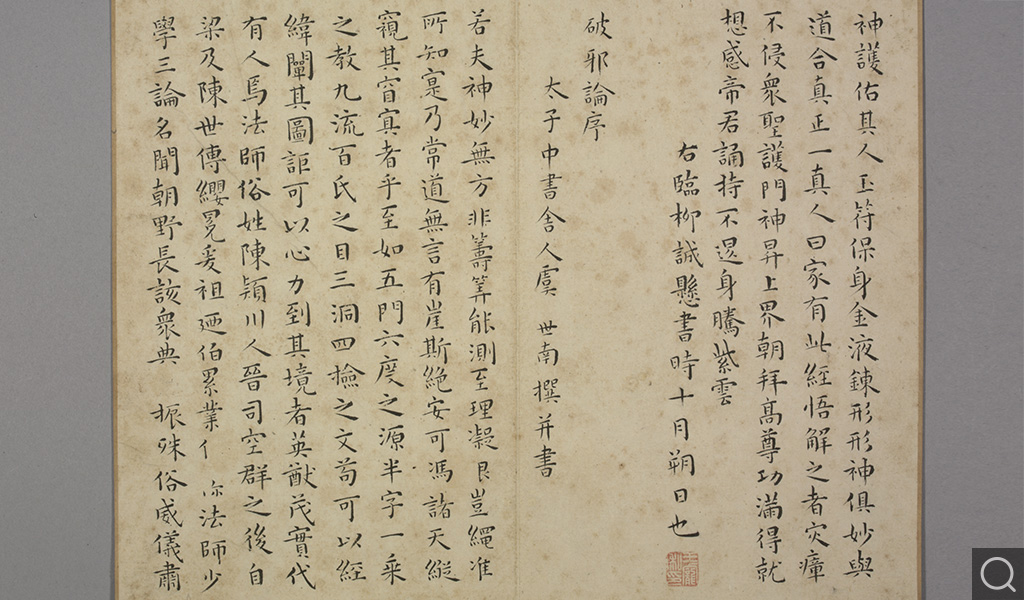 神護佑其人玉符保身金液錬形形神俱妙與
道合真正一真人曰家有此經悟解之者灾瘴
不侵衆聖護門神昇上界朝拜髙尊功滿得就
想感帝君誦持不退身騰紫雲
右臨柳誠懸書時十月朔日也
破邪論序
太子中書舍人虞世南撰并書
若夫神妙無方非籌筭能測至理凝㫐豈繩准
所知寔乃常道無言有崖斯絶安可馮諸天縱
窺其窅寘者乎至如五門六度之源半字一乘
之教九流百氏之目三洞四撿之文苟可以經
緯闡其圖詎可以心力到其境者英猷茂實代
有人焉法師俗姓陳潁川人晉司空群之後自
梁及陳世傳纓冕爰祖迺伯累業 法師少
學三論名聞朝野長該衆典 振殊俗威儀肅